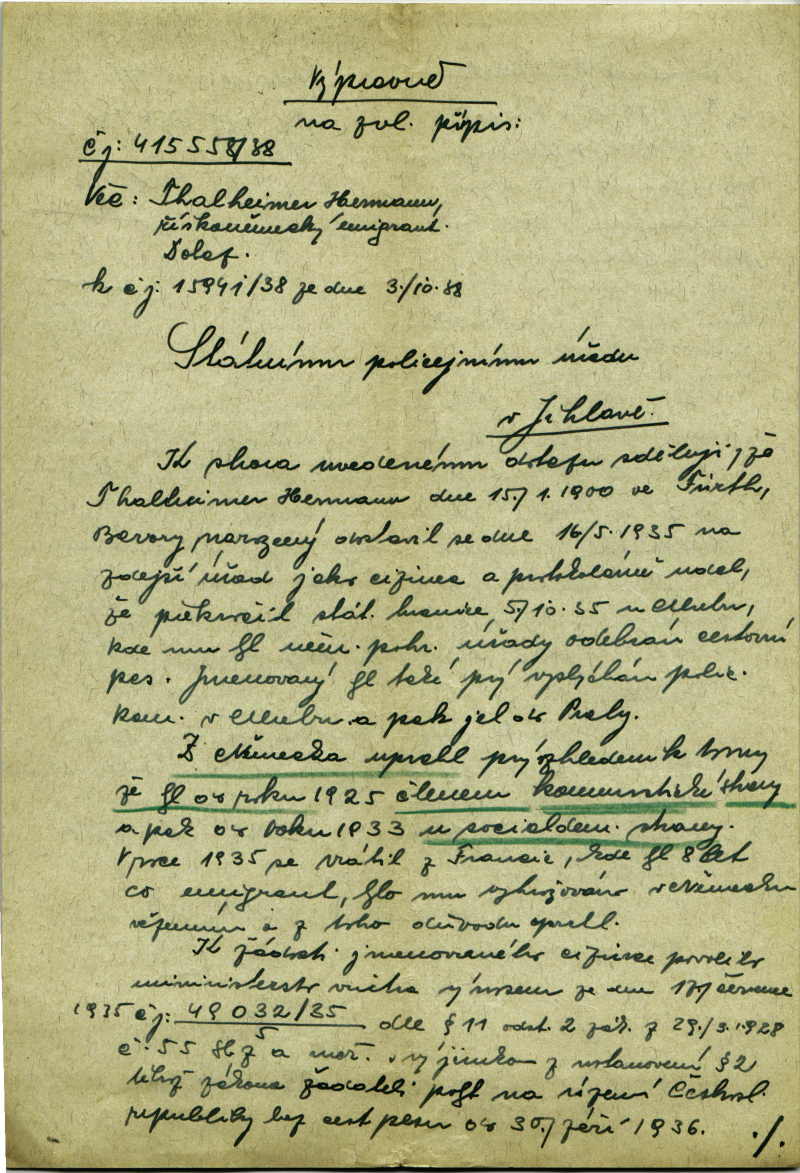 Výpravně
na zvl. přípis:
čj: 415558/38
Věc: Thalheimer Hermann,
říškoněmecký emigrant.
Dotaz.
k čj: 15941/38 ze dne 3./10.38
Státnímu policejnímu úřadu
v Jihlavě.
K shora uvedenému dotazu sděluji, že
Thalheimer Hermann dne 15./1.1900 ve Fürth,
Bavory narozený dostavil se dne 16/5.1935 na
zdejší úřad jako cizinec a protokolárně udal,
že překročil stát. hranice 5./10.35 u
kde mu byl něm. pohr. úřady odebrán cestovní
pas. Jmenovaný byl také prý vyslýchán polic.
kom. v a pak jel do Prahy.
Z Německa uprchl prý vzhledem k tomu
že byl od roku 1925 členem komunistické strany
a pak od roku 1933 u sociáldem. strany.
V roce 1935 se vrátil z Francie, kde byl 8 let
co emigrant, bylo mu vyhrožováno v Německu
vězením a z toho důvodu uprchl.
K žádosti jmenovaného cizince povolilo
ministerstvo vnitra výnosem ze dne 17/července
1935 čj: 49032/35 dle § 11 odst. 2 zák. z 29./3.1928
5
č. 55 Sb z a nař. výjimkou z ustanovení § 2
téhož zákona žadateli pobyt na území Českosl.
republiky bez cest pasu do 30./září 1936.
./.